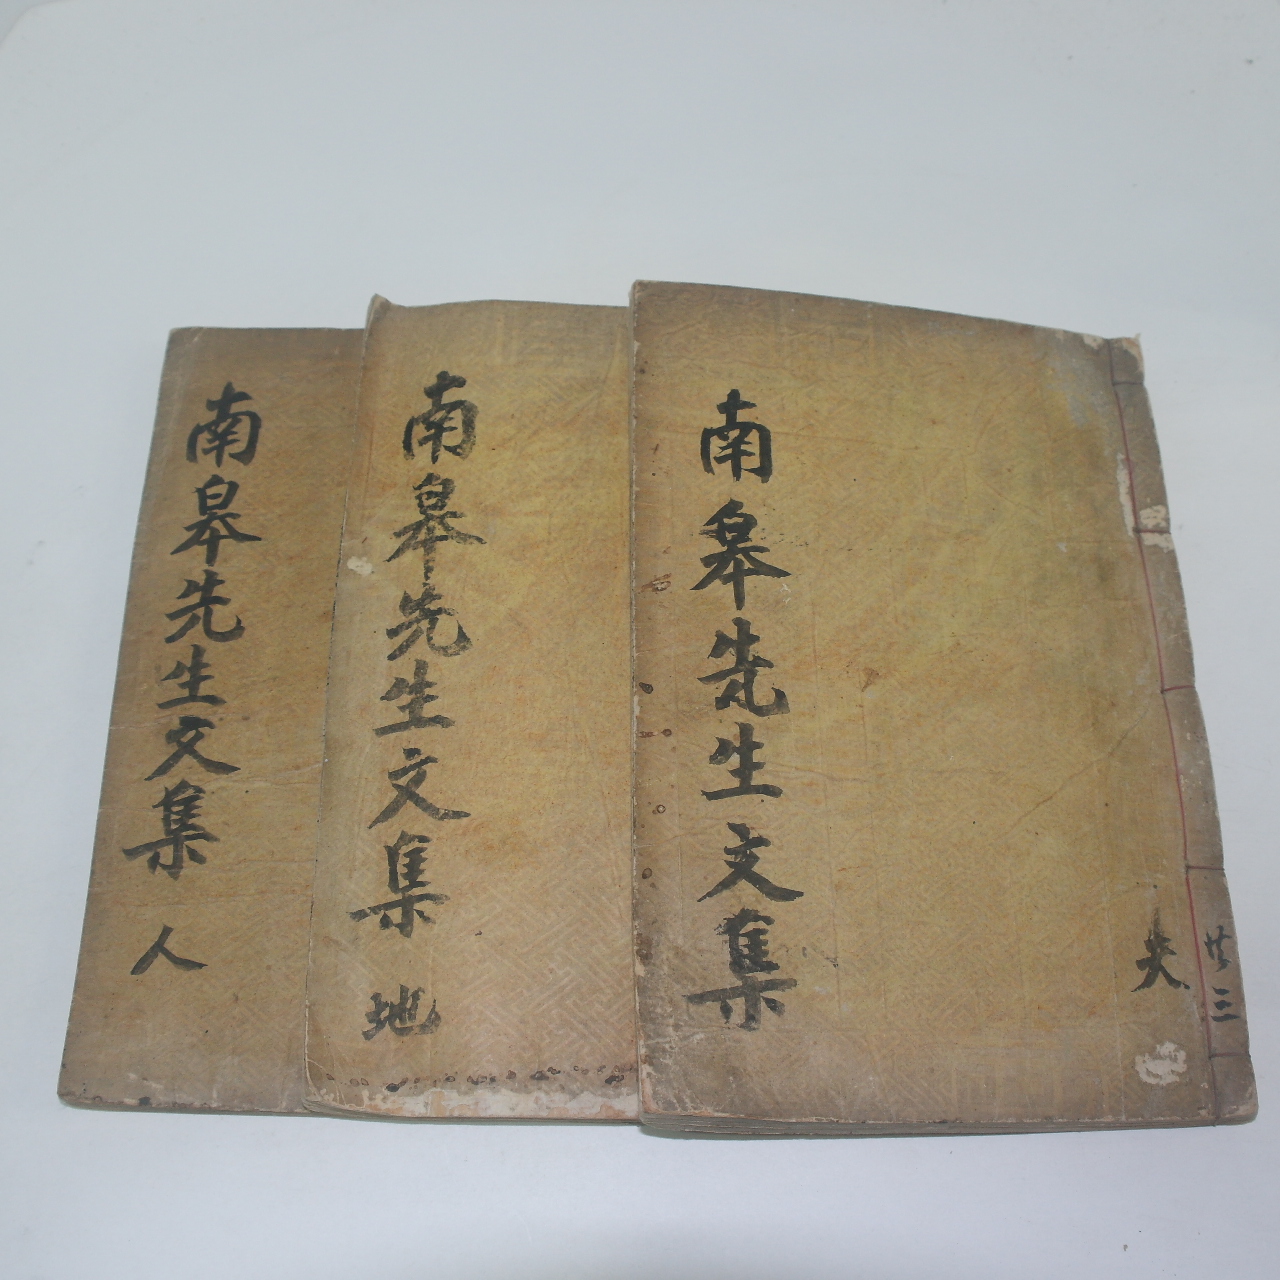 南皋先生文集
天
共三
南皋先生文集
地
南皋先生文集
人